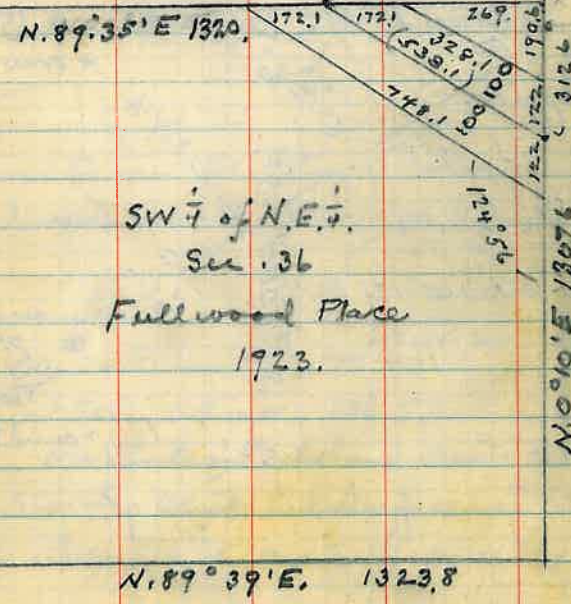 N. 89° 35' E 1320.
172.1 172.1 269.
328.1
(538.1)
748.1
100 100
190.6
122.1
122.1
312.6
124° 56'
SW ¼ of N.E. ¼.
Sec. 36
Fullwood Place
1923.
N. 0° 10' E 1307.6
N. 89° 39' E. 1323.8